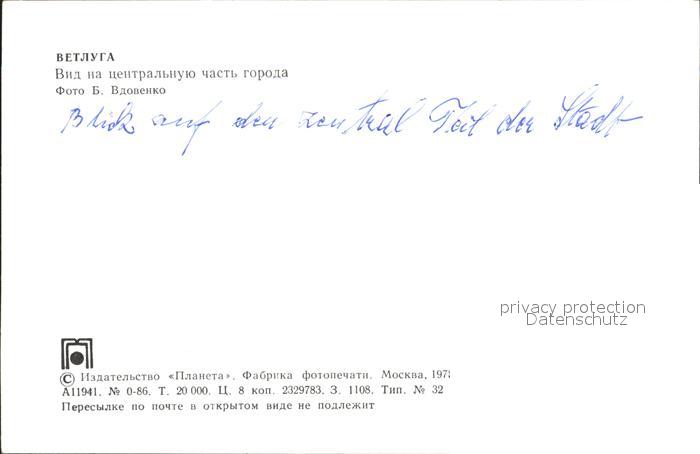 ВЕТЛУГА
Вид на центральную часть города
Фото Б. Вдовенко
Blick auf den zentral Teil der Stadt
privacy protection
Datenschutz
© Издательство «Планета». Фабрика фотопечати. Москва,
А11941. № 0-86. Т. 20 000. Ц. 8 коп. 2329783. З. 1108. Тип. № 32
Пересылке по почте в открытом виде не подлежит